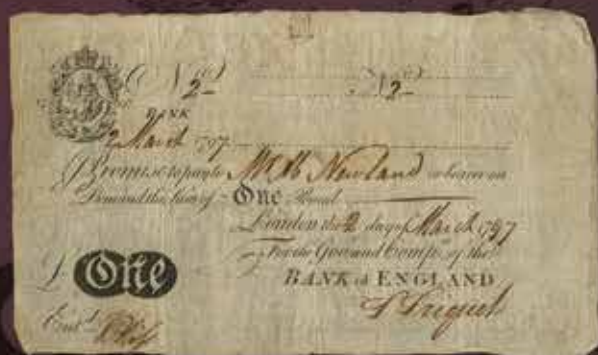 No. 2 No. 2
BANK
2 March 1797
I Promise to pay to Mr. Ab. Newland or bearer on
Demand the Sum of One Pound
London the 2 day of March 1797
For the Gov. and Comp.a of the
BANK of ENGLAND
£ One
Ent.d